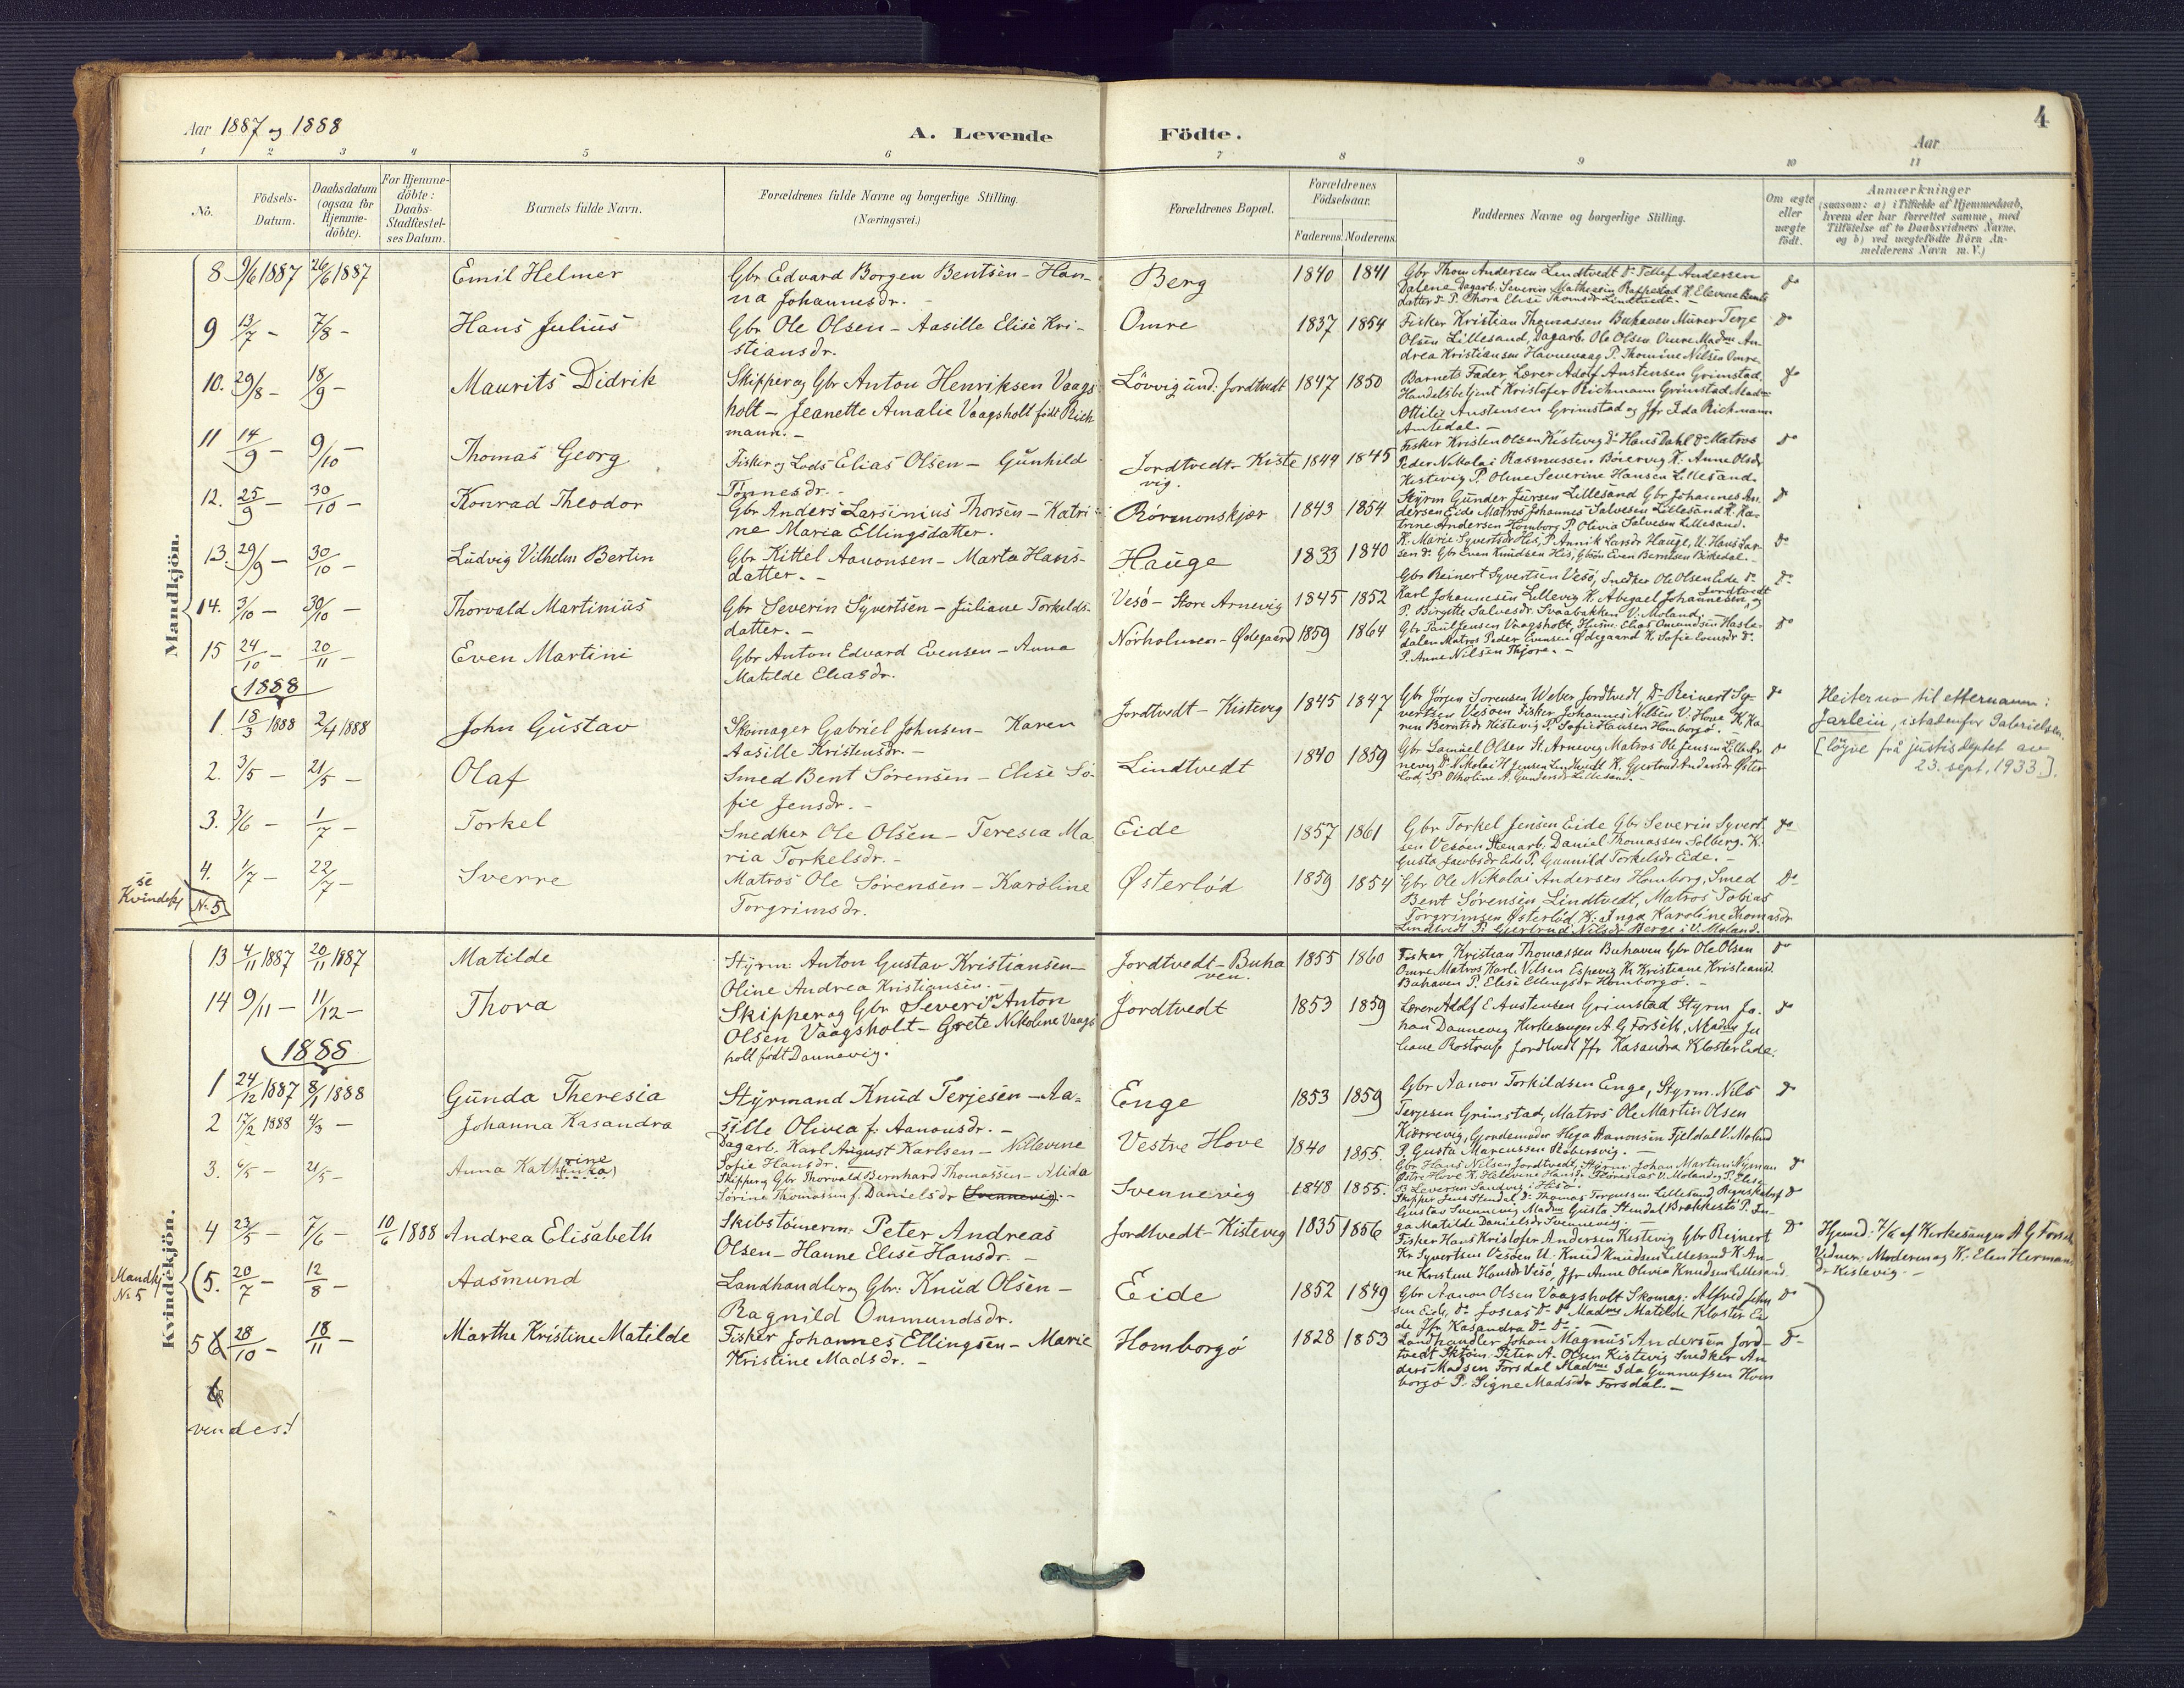 4
Aar 1887 og 1888
A. Levende Födte.
Aar
1 2 3 4 5 6 7 8 9 10 11
Nö.
Födsels-Datum.
Daabsdatum (ogsaa for Hjemme-döbte).
For Hjemme-döbte: Daabs-Stadfæstel-ses Datum.
Barnets fulde Navn.
Forældrenes fulde Navne og borgerlige Stilling.
(Næringsvei.)
Forældrenes Bopæl.
Forældrenes Födselsaar.
Faderens. Moderens.
Faddernes Navne og borgerlige Stilling.
Om ægte eller uægte födt.
Anmærkninger
(saasom: a) i Tilfælde af Hjemmedaab,
hvem der har forrettet samme, med
Tilföielse af to Daabsvidners Navne,
og b) ved uægtefödte Börn An-
melderens Navn m. V.)
Mandkjön.
8 9/6 1887 26/6 1887 Emil Helmer
Gbr Edvard Borgen Bentsen - Han-
na Johannesdr. -
Berg 1840 1841
Gbr Thom Andersen Lindtvedt Do Tellef Andersen
Dalene Dagarb. Severin Mathiesen K. Elevine Bents
datter Do P. Thora Elise Thomsdr Lindtvedt. -
9 13/7 - 7/8 - Hans Julius
Gbr Ole Olsen - Aasille Elise Kri-
stiansdr.
Omre 1837 1854
Fisker Kristian Thomassen Buhaven Murer Terje
Olsen Lillesand, Dagarb. Ole Olsen Omre Madm An-
drea Kristiansen Havnevaag P. Thomine Nilsen Omre.
Do
10. 29/8 - 18/9 - Maurits Didrik
Skipper og Gbr Anton Henriksen Vaags
holt - Jeanette Amalie Vaagsholt födt Rich
mann. -
Lövvig und: Jordtvedt 1847 1850
Barnets Fader, Lærer Adolf Austensen Grimstad,
Handelsbetjent Kristofer Richmann Grimstad Madm
Ottilie Austensen Grimstad og Jfr Ida Richmann
11 14/9 - 9/10 - Thomas Georg
Fisker og Lods Elias Olsen - Gunhild
Tönnesdr. -
Jordtvedt - Kiste
vig. 1844 1845
Fisker Kristen Olsen Kistevig Do Hans Dahl Do Matros
Peder Nikolai Rasmussen Böiervig K. Anne Olsdr
Kistevig P. Oline Severine Hansen Lillesand.
Do
12. 25/9 - 30/10 - Konrad Theodor
Gbr Anders Larsinius Thorsen - Katri-
ne Maria Ellingsdatter.
Rörmonskjær 1843 1854
Styrm Gunder Jürsen Lillesand Gbr Johannes An-
dersen Eide Matros Johannes Salvesen Lillesand K. Ka-
trine Andersen Homborg P. Olivia Salvesen Lillesand.
Do
13. 29/9 - 30/10 - Ludvig Vilhelm Bertin
Gbr Kittel Aanonsen - Marta Hans-
datter. -
Hauge 1833 1840
K. Marie Syvertsdr His, P. Annik Larsdr Hauge, U. Hans Lar-
sen Do Gbr Even Knudsen His, Gbsön Even Berntsen Birkedal.
Do
14. 3/10 - 30/10 - Thorvald Martinius
Gbr Severin Syvertsen - Juliane Torkelds-
datter. -
Vesö - Store Arnevig 1845 1852
Gbr Reinert Syvertsen Vesö, Snedker Ole Olsen Eide Do
Karl Johannesen Lillevig K. Abegael Johannesen Jordtvedt og
P. Birgette Salvesdr. Svaabakken V: Moland.
Do
15 24/10 - 20/11 - Even Martini
Gbr Anton Edvard Evensen - Anna
Matilde Eliasdr.
Nörholmen - Ødegaard 1859 1864
Gbr Paul Jensen Vaagsholt, Husm. Elias Omundsen Hasle-
dalen Matros Peder Evensen Ødegaard K. Sofie Evensdr Do
P. Anne Nilsen Thjore. -
Do
1888
1. 18/3 1888 2/4 1888 John Gustav
Skomager Gabriel Johnsen - Karen
Aasille Kristensdr. -
Jordtvedt - Kistevig 1845 1847
Gbr Jörgen Sorensen Weber Jordtvedt Do Reinert Sy-
vertsen Vesöen Fisker Johannes Nilsen V: Hove K. Ka-
ren Berntsdr Kistevig P. Sofie Hansen Homborgö. -
Do
Heiter no til etternamn:
Jarlein, istadenfor Gabrielsen.
[löyve frå justisdeptet av
23. sept. 1933.].
2. 3/5 - 21/5 - Olaf
Smed Bent Sörensen - Elise So-
fie Jensdr. -
Lindtvedt 1840 1859
Gbr Samuel Olsen St. Arnevig Matros Ole Jensen Lille Ar-
nevig Do Nikolai H Jensen Lindtvedt K. Gjertrud Andersdr Øster-
löd, P. Otholine A. Gundersdr Lillesand. -
Do
3. 3/6 - 1/7 - Torkel
Snedker Ole Olsen - Teresia Ma
ria Torkelsdr. -
Eide 1857 1861
Gbr Torkel Jensen Eide Gbr Severin Syvert-
sen Vesöen Stenarb. Daniel Thomassen Solberg. K.
Gusta Jacobsdr Eide P. Gunnild Torkelsdr Eide. -
4. 1/7 - 22/7 - Sverre
Matros Ole Sörensen - Karoline
Torgrimsdr.
Østerlöd 1859 1854
Gbr. Ole Nikolai Andersen Homborg, Smed
Bent Sörensen, Lindtvedt, Matros Tobias
Torgrimsen Østerlöd K: Inga Karoline Thomasdr
Lindtvedt P. Gjertrud Nilsdr Berge i V. Moland.
Do
se Kvindekj No 5
Kvindekjön.
13 4/11 1887 20/11 1887 Matilde
Styrm: Anton Gustav Kristiansen -
Oline Andrea Kristiansen. -
Jordtvedt - Buha
ven. 1855 1860
Fisker Kristian Thomassen Buhaven Gbr Ole Olsen
Omre Matros Karl Nilsen Espevig K. Kristiane Kristiansd.
Buhaven P. Elise Ellingsdr Homborgö. -
Do
14 9/11 - 11/12 - Thora
Skipper og Gbr Severin Anton
Olsen Vaagsholt - Grete Nikoline Vaags
holt födt Dannevig.
Jordtvedt 1853 1859
Lærer Adolf E Austensen Grimstad Styrm Jo-
han Dannevig Kirkesanger A. G Forseth, Madm Ju
liane Rostrup Jordtvedt Jfr Kasandra Kloster Eide.
Do
1888
1 24/12 1887 8/1 1888 Gunda Theresia
Styrmand Knud Terjesen - Aa-
sille Olivia f: Aanonsdr. -
Enge 1853 1859
Gbr Aanon Torkildsen Enge, Styrm. Nils
Terjesen Grimstad, Matros Ole Martin Olsen
Kjærrevig, Gjordemoder Helga Aanonsen Fjeldal V. Moland
P. Gusta Marcussen Röbersvig. -
Do
2 17/2 1888 4/3 - Johanna Kasandra
Dagarb. Karl August Karlsen - Nillevine
Sofie Hansdr. -
Vestre Hove 1840 1855.
Gbr Hans Nilsen Jordtvedt, Styrm. Johan Martin Nyman
Do
3. 6/5 - 21/5 - Anna Kathrine (inka)
Skipper og Gbr Thorvald Bernhard Thomassen - Alida
Sörine Thomassen f. Danielsdr Svennevig. -
Svennevig 1848 1855.
Skipper Jens Stendal Do Thomas Torgussen Lillesand
Gustav Svennevig Madm Gusta Stendal Brækkestö P. In-
ga Matilde Danielsdr Svennevig. -
Do
4 23/5 - 7/6 - 10/6 1888 Andrea Elisabeth
Skibstömerm: Peter Andreas
Olsen - Hanne Elise Hansdr. -
Jordtvedt - Kistevig 1835 1856
Fisker Hans Kristofer Andersen Kistevig Gbr Reinert
Kr. Syvertsen Vesöen U. Knud Knudsen Lillesand K. An-
ne Kristine Hansdr Vesö, Jfr Anne Olivia Knudsen Lillesand.
Do
Hjemd: 7/6 af Kirkesanger A G Forseth
Vidner: Moderen og K: Elen Herman
dr Kistevig. -
Mandkj No 5
(5. 20/7 - 12/8 - Aasmund
Landhandler og Gbr: Knud Olsen -
Ragnild Ommundsdr.
Eide 1852 1849
Gbr Aanon Olsen Vaagsholt Skomag: Alfred John
sen Eide, Do Josias Do Do Madm Matilde Kloster Ei
de Jfr Kasandra Do Do -
Do
5 6 28/10 - 18/11 - Marthe Kristine Matilde
Fisker Johannes Ellingsen - Marie
Kristine Madsdr. -
Homborgö 1828 1853
Landhandler Johan Magnus Andersen Jord-
tvedt Sktöm. Peter A. Olsen Kistevig Snedker An
ders Madsen Forsdal Madm Ida Gunnufsen Hom
borgö P. Signe Madsdr Forsdal. -
Do
6
vendes!